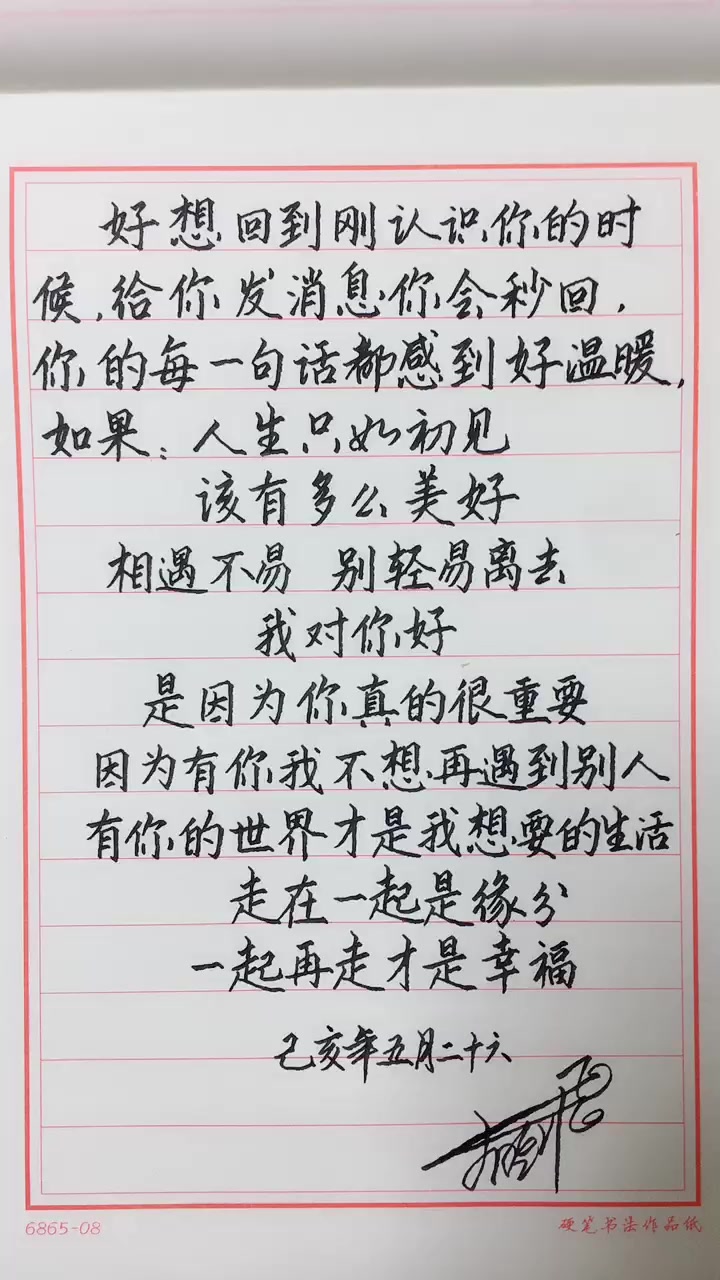 好想回到刚认识你的时
候,给你发消息你会秒回,
你的每一句话都感到好温暖,
如果:人生只如初见
该有多么美好
相遇不易 别轻易离去
我对你好
是因为你真的很重要
因为有你我不想再遇到别人
有你的世界才是我想要的生活
走在一起是缘分
一起再走才是幸福
己亥年五月二十六
6865-08
硬笔书法作品纸